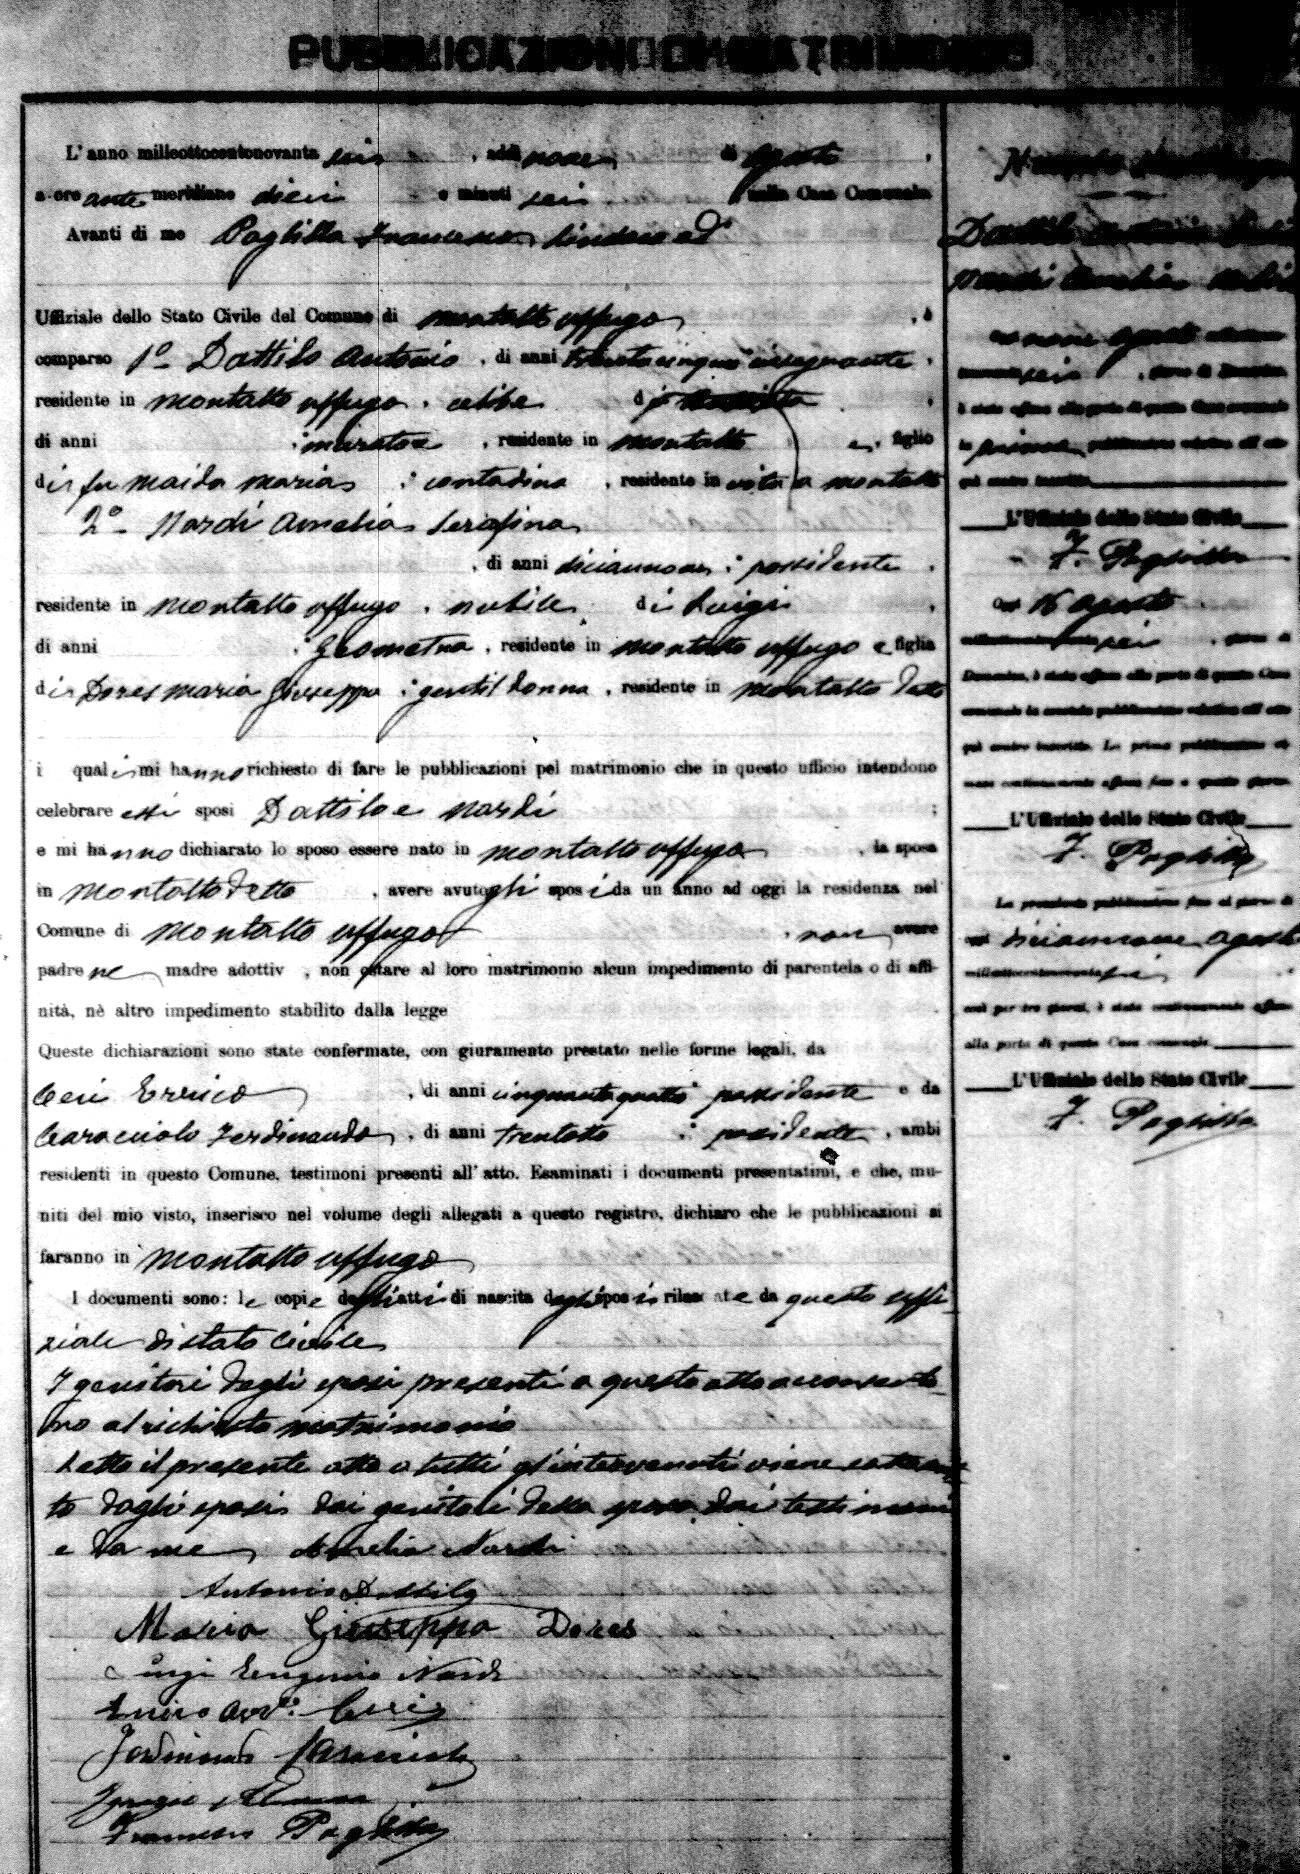 PUBBLICAZIONI DI MATRIMONIO
L'anno milleottocentonovanta sei, addì nove di Agosto,
a ore ante meridiane dieci e minuti sei nella Casa Comunale
Avanti di me Paglilla Francesco Sindaco ed
Uffiziale dello Stato Civile del Comune di Montalto Uffugo, è
comparso 1º Dattilo Antonio, di anni trentacinque insegnante,
residente in Montalto Uffugo, celibe di
di anni ; muratore, residente in Montalto e, figlio
di fu Maida Maria ; contadina, residente in vita a Montalto
2º Nardi Amelia Serafina
, di anni diciannove ; possidente,
residente in Montalto Uffugo, nubile, di Luigi,
di anni ; Geometra, residente in Montalto Uffugo e figlia
di Dores Maria Giuseppa ; gentildonna, residente in Montalto detto
i quali mi hanno richiesto di fare le pubblicazioni pel matrimonio che in questo ufficio intendono
celebrare essi sposi Dattilo e Nardi ;
e mi hanno dichiarato lo sposo essere nato in Montalto Uffugo, la sposa
in Montalto detto, avere avuto gli sposi da un anno ad oggi la residenza nel
Comune di Montalto Uffugo, non avere
padre nè madre adottiv , non ostare al loro matrimonio alcun impedimento di parentela o di affi-
nità, nè altro impedimento stabilito dalla legge
Queste dichiarazioni sono state confermate, con giuramento prestato nelle forme legali, da
Ceri Errico, di anni cinquantaquattro possidente e da
Caracciolo Ferdinando, di anni trentotto ; possidente, ambi
residenti in questo Comune, testimoni presenti all'atto. Esaminati i documenti presentatimi, e che, mu-
niti del mio visto, inserisco nel volume degli allegati a questo registro, dichiaro che le pubblicazioni si
faranno in Montalto Uffugo
I documenti sono: le copie degli atti di nascita degli sposi rilasciate da questo uffi-
ziale di stato civile
I genitori degli sposi presenti a questo atto acconsento-
no al richiesto matrimonio
Letto il presente atto a tutti gl'intervenuti viene sottoscrit-
to dagli sposi dai genitori della sposa, dai testimoni
e da me Amelia Nardi
Antonio Dattilo
Maria Giuseppa Dores
Luigi Eugenio Nardi
Enrico Avv. Ceri
Ferdinando Caracciolo
Francesco Paglilla
Dattilo Antonio
Nardi Amelia
nove Agosto
sei, giorno di Domenica
è stata affissa alla porta di questa Casa comunale
la prima pubblicazione relativa all'atto
quì contro inscritto
L'Uffiziale dello Stato Civile
F. Paglilla
Oggi 16 Agosto
milleottocentonovantasei, giorno di
Domenica, è stata affissa alla porta di questa Casa
comunale la seconda pubblicazione relativa all'atto
quì contro inscritto. La prima pubblicazione ri-
mase continuamente affissa fino a questo giorno.
L'Uffiziale dello Stato Civile
F. Paglilla
La presente pubblicazione fino al giorno di
oggi diciannove Agosto
milleottocentonovantasei
cioè per tre giorni, è stata continuamente affissa
alla porta di questa Casa comunale
L'Uffiziale dello Stato Civile
F. Paglilla